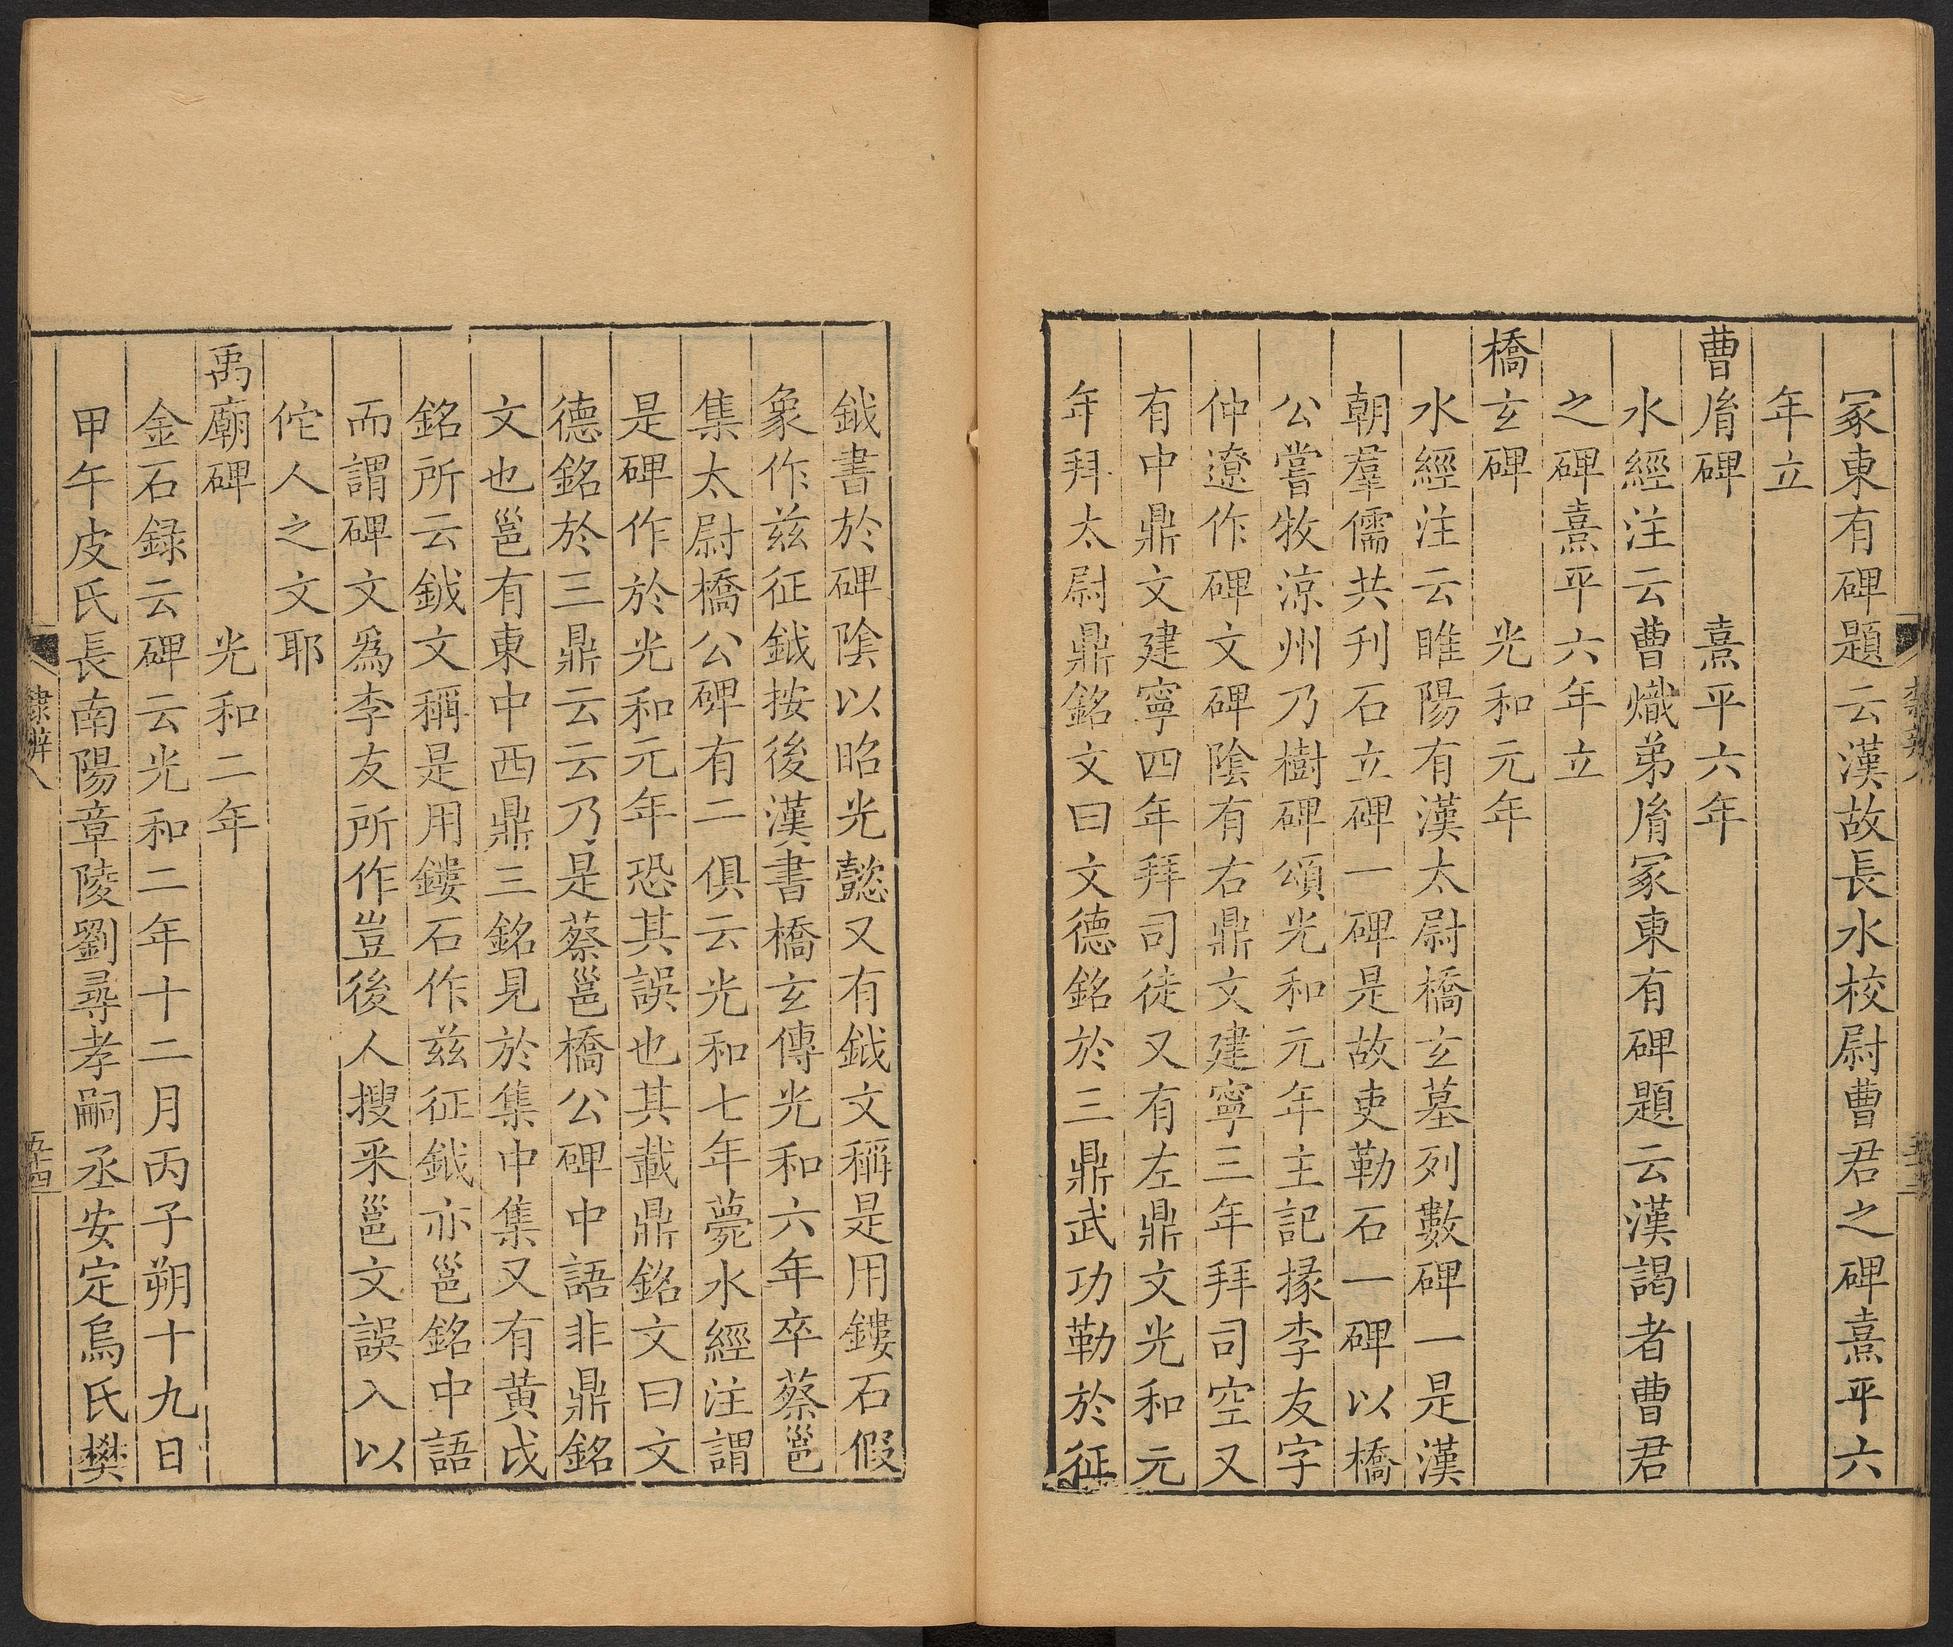 冢東有碑題云漢故長水校尉曹君之碑熹平六
年立
曹㣧碑 熹平六年
水經注云曹熾弟㣧冢東有碑題云漢謁者曹君
之碑熹平六年立
橋玄碑 光和元年
水經注云睢陽有漢太尉橋玄墓列數碑一是漢
朝羣儒共刊石立碑一碑是故吏勒石一碑以橋
公嘗牧涼州乃樹碑頌光和元年主記掾李友字
仲遼作碑文碑陰有右鼎文建寧三年拜司空又
有中鼎文建寧四年拜司徒又有左鼎文光和元
年拜太尉鼎銘文曰文德銘於三鼎武功勒於征
鉞書於碑陰以昭光懿又有鉞文稱是用鏤石假
象作兹征鉞按後漢書橋玄傳光和六年卒蔡邕
集太尉橋公碑有二俱云光和七年薨水經注謂
是碑作於光和元年恐其誤也其載鼎銘文曰文
德銘於三鼎云云乃是蔡邕橋公碑中語非鼎銘
文也邕有東中西鼎三銘見於集中集又有黄戉
銘所云鉞文稱是用鏤石作兹征鉞亦邕銘中語
而謂碑文爲李友所作豈後人搜采邕文誤入以
佗人之文耶
禹廟碑 光和二年
金石録云碑云光和二年十二月丙子朔十九日
甲午皮氏長南陽章陵劉尋孝嗣丞安定烏氏樊
隸辨八
五十四